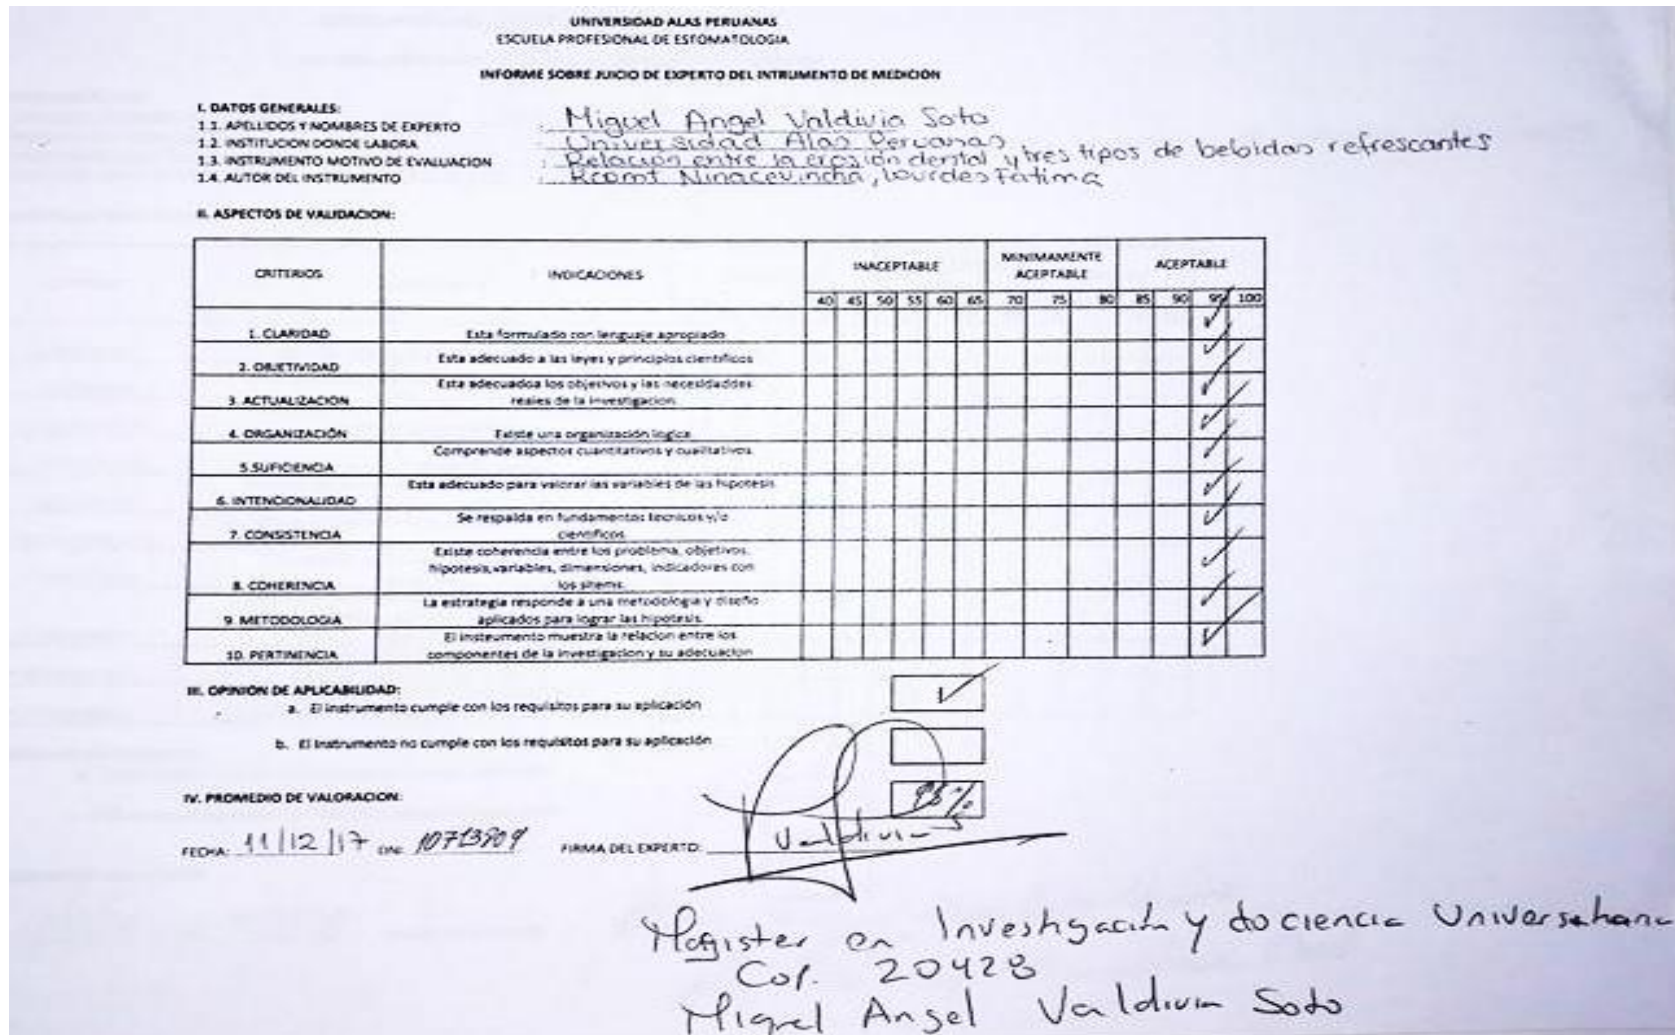 UNIVERSIDAD ALAS PERUANAS
ESCUELA PROFESIONAL DE ESTOMATOLOGIA
INFORME SOBRE JUICIO DE EXPERTO DEL INTRUMENTO DE MEDICIÓN
I. DATOS GENERALES:
1.1. APELLIDOS Y NOMBRES DE EXPERTO : Miguel Angel Valdivia Soto
1.2. INSTITUCION DONDE LABORA : Universidad Alas Peruanas
1.3. INSTRUMENTO MOTIVO DE EVALUACION : Relación entre la erosión dental y tres tipos de bebidas refrescantes
1.4. AUTOR DEL INSTRUMENTO : Ninacevincha, Lourdes Fatima
II. ASPECTOS DE VALIDACION:
CRITERIOS INDICACIONES INACEPTABLE MINIMAMENTE ACEPTABLE ACEPTABLE
40 45 50 55 60 65 70 75 80 85 90 95 100
1. CLARIDAD Esta formulado con lenguaje apropiado
2. OBJETIVIDAD Esta adecuado a las leyes y principios cientificos
3. ACTUALIZACION Esta adecuadoa los objetivos y las necesidaddes
reales de la investigacion
4. ORGANIZACIÓN Existe una organización logica
5.SUFICIENCIA Comprende aspectos cuantitativos y cualitativos
6. INTENCIONALIDAD Esta adecuado para valorar las variables de las hipotesis
7. CONSISTENCIA Se respalda en fundamentos tecnicos y/o
cientificos
8. COHERENCIA Existe coherencia entre los problema, objetivos,
hipotesis,variables, dimensiones, indicadores con
los sitems.
9. METODOLOGIA La estrategia responde a una metodologia y diseño
aplicados para lograr las hipotesis
10. PERTINENCIA El insteumento muestra la relacion entre los
componentes de la investigacion y su adecuacion
III. OPINIÓN DE APLICABILIDAD:
a. El instrumento cumple con los requisitos para su aplicación
b. El instrumento no cumple con los requisitos para su aplicación
IV. PROMEDIO DE VALORACION: 95%
FECHA: 11/12/17 DNI: FIRMA DEL EXPERTO: Valdivia S
Magister en Investigación y dociencia Universitaria
Cop. 20428
Miguel Angel Valdivia Soto